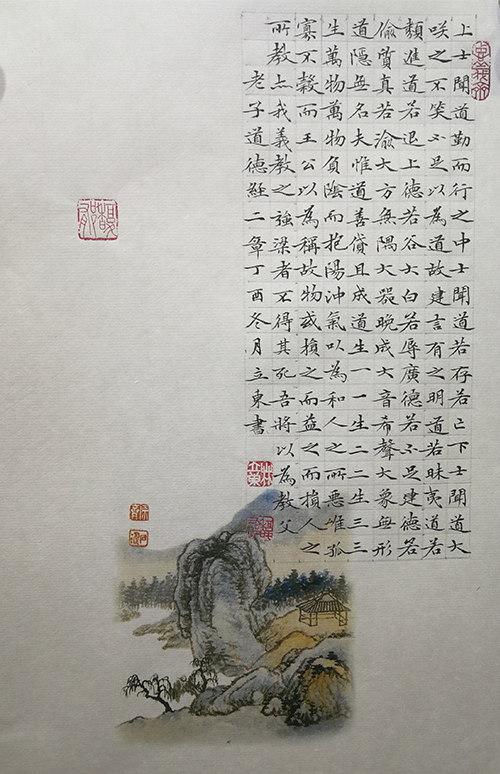 上士聞道勤而行之中士聞道若存若亡下士聞道大
咲之不笑不足以為道故建言有之明道若昧夷道若
類進道若退上德若谷大白若辱廣德若不足建德若
偷質真若渝大方無隅大器晚成大音希聲大象無形
道隱無名夫惟道善貸且成道生一一生二二生三三
生萬物萬物負陰而抱陽沖氣以為和人之所惡唯孤
寡不穀而王公以為稱故物或損之而益之而損人之
所教亦我義教之強梁者不得其死吾將以為教父
老子道德經二章丁酉冬月立東書